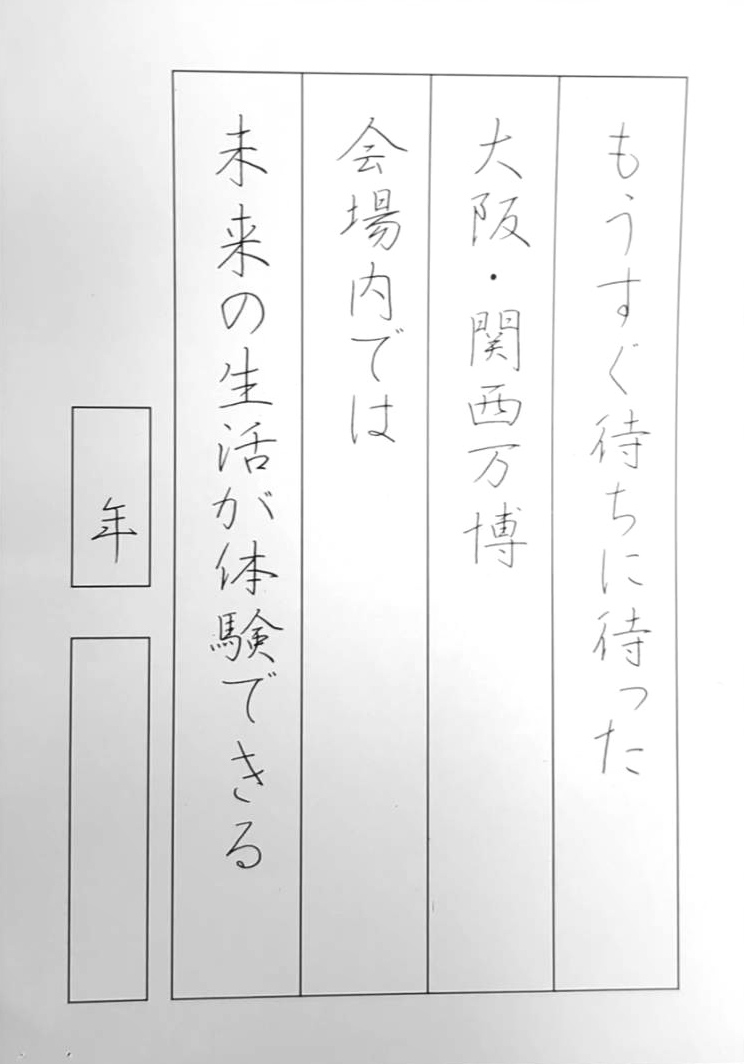 もうすぐ待ちに待った
大阪・関西万博
会場内では
未来の生活が体験できる
年